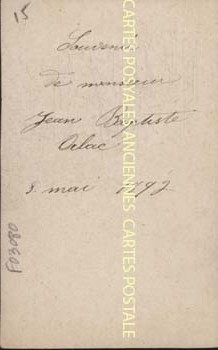 15
Souvenir
de monsieur
Jean Baptiste
Orlac
8 mai 1792
CARTES POSTALES ANCIENNES CARTES POSTALE